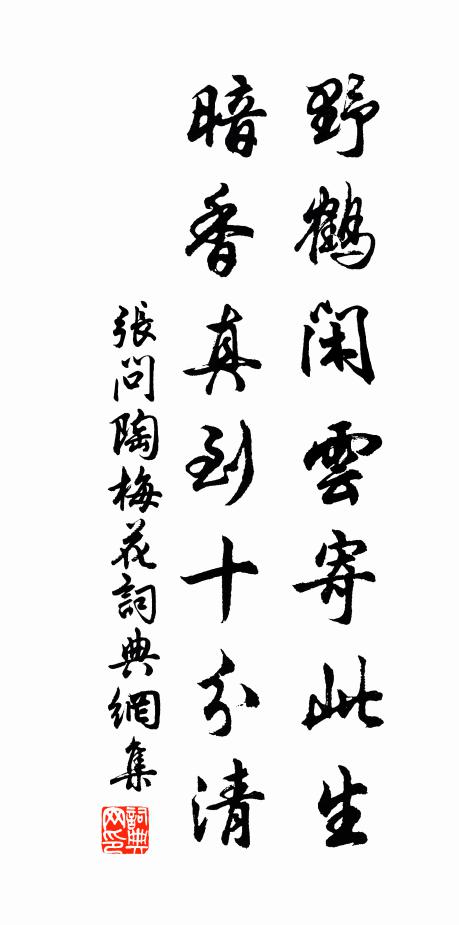 野鶴閑雲寄此生
暗香真到十分清
張問陶梅花詞典網集
詞典網印